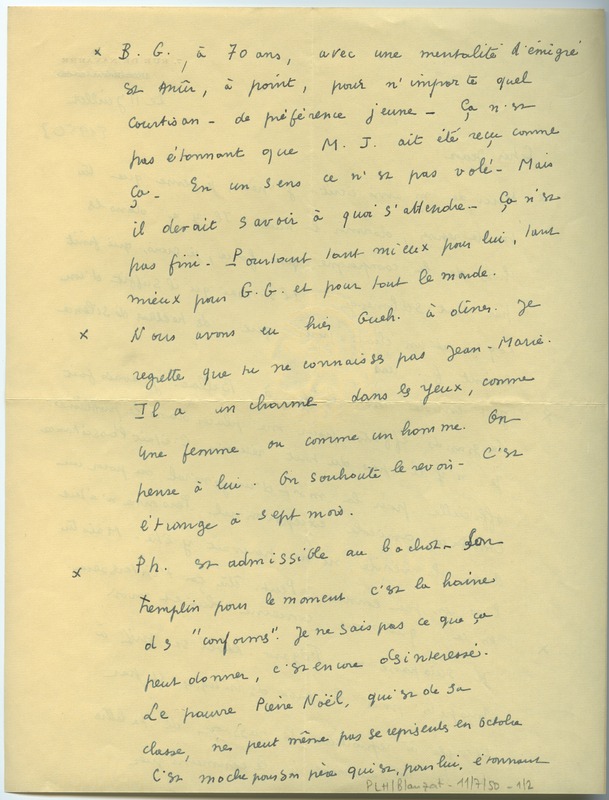 x B. G., à 70 ans, avec une mentalité d'émigré
est mûr, à point, pour n'importe quel
courtisan - de préférence jeune - Ça n'est
pas étonnant que M. J. ait été reçu comme
ça - En un sens ce n'est pas volé - Mais
il devait savoir à quoi s'attendre - Ça n'est
pas fini - Pourtant tant mieux pour lui, tant
mieux pour G. G. et pour tout le monde.
x Nous avons eu hier Gueh. à dîner. Je
regrette que tu ne connaisses pas Jean-Marie.
Il a un charme dans les yeux, comme
une femme ou comme un homme. On
pense à lui. On souhaite le revoir - C'est
étrange à sept mois.
x Ph. est admissible au bachot - Son
tremplin pour le moment c'est la haine
des "conforms". Je ne sais pas ce que ça
peut donner, c'est encore désinteressé.
Le pauvre Pierre Noël, qui est de sa
classe, ne peut même pas se représenter en Octobre
C'est moche pour son père qui est, pour lui, étonnant
PLH/Blanzat - 11/7/50 - 1/2